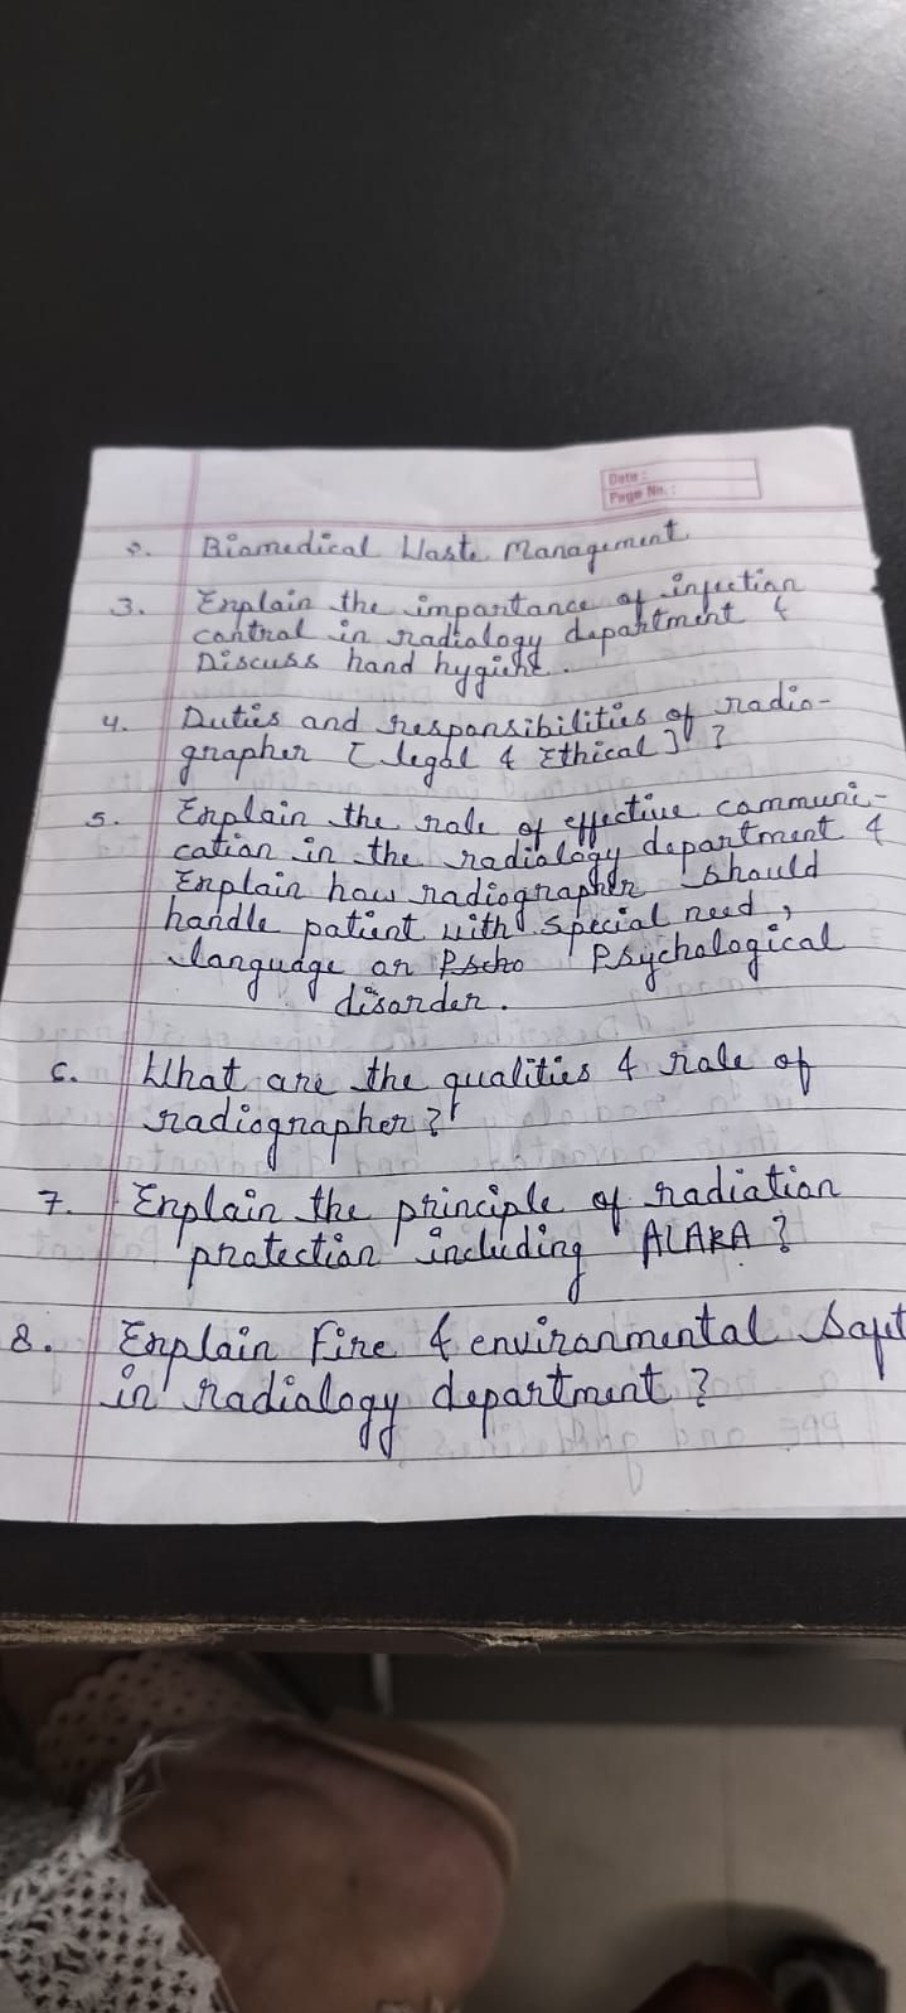 Date :
Page No. :
2. Biomedical Waste Management
3. Explain the importance of infection
control in radiology department &
Discuss hand hygiene.
4. Duties and responsibilities of radio-
grapher [legal & Ethical] ?
5. Explain the role of effective communi-
cation in the radiology department &
Explain how radiographer should
handle patient with special need,
language or Pscho Psychological
disorder.
6. What are the qualities & role of
radiographer?
7. Explain the principle of radiation
protection including ALARA ?
8. Explain Fire & environmental Safet
in radiology department ?